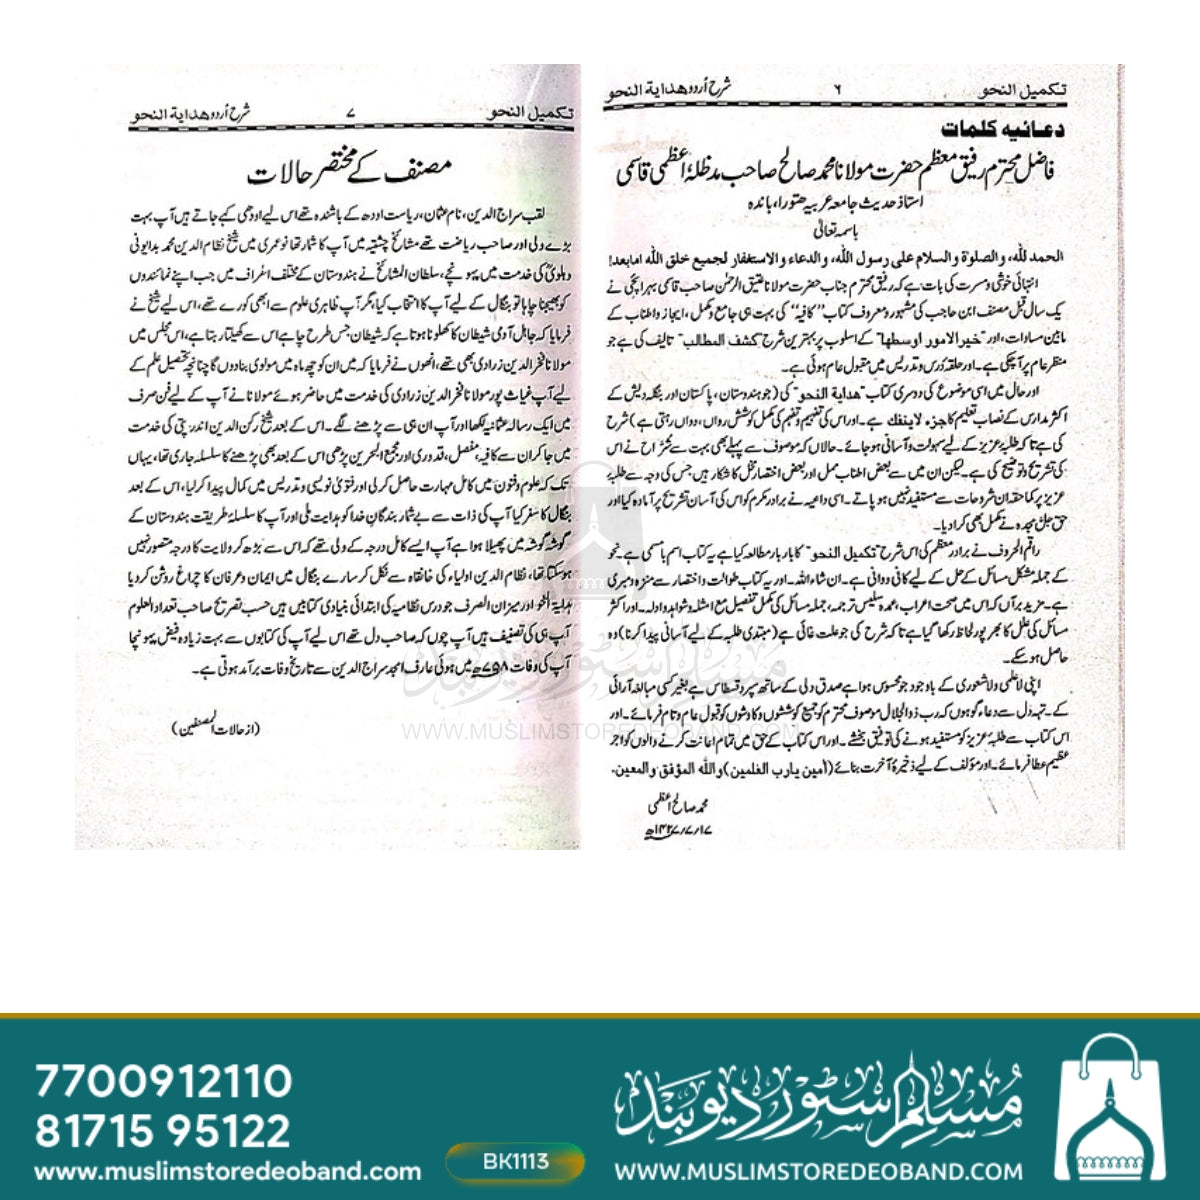 تکمیل النحو ۶ شرح اُردو هدایة النحو
دعائیہ کلمات
فاضل محترم رفیق معظم حضرت مولانا محمد صالح صاحب مدظلہٗ اعظمی قاسمی
استاذ حدیث جامعہ عربیہ ھتورا، باندہ
باسمہ تعالیٰ
الحمد للہ، والصلوة والسلام علی رسول اللہ، والدعاء والاستغفار لجمیع خلق اللہ اما بعد!
انتہائی خوشی و مسرت کی بات ہے کہ رفیق محترم جناب حضرت مولانا عتیق الرحمٰن صاحب قاسمی بہرائچی نے
یک سال قبل مصنف ابن حاجب کی مشہور و معروف کتاب "کافیہ" کی بہت ہی جامع و مکمل، ایجاز و اطناب کے
مابین مساوات، اور "خیر الامور اوسطها" کے اسلوب پر بہترین شرح "کشف المطالب" تالیف کی ہے جو
منظر عام پر آچکی ہے۔ اور حلقۂ درس و تدریس میں مقبول عام ہوئی ہے۔
اور حال میں اسی موضوع کی دوسری کتاب "هدایة النحو" کی (جو ہندوستان، پاکستان اور بنگلہ دیش کے
اکثر مدارس کے نصاب تعلیم کا جزء لاینفک ہے۔ اور اس کی تفہیم و تفہم کی مکمل کوشش رواں، دواں رہتی ہے) شرح
کی ہے تاکہ طلبۂ عزیز کے لیے سہولت و آسانی ہو جائے۔ حالاں کہ موصوف سے پہلے بھی بہت سے شُرّاح نے اس
کی تشریح و توضیح کی ہے۔ لیکن ان میں سے بعض اطناب ممل اور بعض اختصار مخل کا شکار ہیں جس کی وجہ سے طلبۂ
عزیز پر کماحقہ ان شروحات سے مستفید نہیں ہو پاتے۔ اسی داعیہ نے برادر مکرم کو اس کی آسان تشریح پر آمادہ کیا اور
حق جل مجدہ نے مکمل بھی کرا دیا۔
راقم الحروف نے برادر معظم کی اس شرح "تکمیل النحو" کا بار بار مطالعہ کیا ہے یہ کتاب اسم بامسمی ہے۔ نحو
کے جملہ مشکل مسائل کے حل کے لیے کافی و وافی ہے۔ ان شاء اللہ۔ اور یہ کتاب طوالت و اختصار سے منزہ و مبری
ہے۔ مزید برآں کہ اس میں صحت اعراب، عمدہ سلیس ترجمہ، جملہ مسائل کی مکمل تفصیل مع امثلہ و شواہد و ادلہ۔ اور اکثر
مسائل کی علل کا بھرپور لحاظ رکھا گیا ہے تاکہ شرح کی جو علت غائی ہے (مبتدی طلبہ کے لیے آسانی پیدا کرنا) وہ
حاصل ہو سکے۔
اپنی لاعلمی و لاشعوری کے باوجود جو محسوس ہوا ہے صدق دلی کے ساتھ سپرد قرطاس ہے بغیر کسی مبالغہ آرائی
کے۔ تہہ دل سے دعاء گو ہوں کہ رب ذوالجلال موصوف محترم کو جمیع کوششوں و کاوشوں کو قبول عام و تام فرمائے۔ اور
اس کتاب سے طلبۂ عزیز کو مستفید ہونے کی توفیق بخشے۔ اور اس کتاب کے حق میں تمام اعانت کرنے والوں کو اجر
عظیم عطا فرمائے۔ اور مؤلف کے لیے ذخیرۂ آخرت بنائے (آمین یارب العٰلمین) واللہ المؤفق والمعین۔
محمد صالح اعظمی
۱۷/۷/۱۴۲۷ھ
تکمیل النحو ۷ شرح اُردو هدایة النحو
مصنف کے مختصر حالات
لقب سراج الدین، نام عثمان، ریاست اودھ کے باشندہ تھے اس لیے اودھی کہے جاتے ہیں آپ بہت
بڑے ولی اور صاحب ریاضت تھے مشائخ چشتیہ میں آپ کا شمار تھا نوعمری میں شیخ نظام الدین محمد بدایونی
دہلویؒ کی خدمت میں پہونچے، سلطان المشائخ نے ہندوستان کے مختلف اطراف میں جب اپنے نمائندوں
کو بھیجنا چاہا تو بنگال کے لیے آپ کا انتخاب کیا، مگر آپ ظاہری علوم سے ابھی کورے تھے، اس لیے شیخ نے
فرمایا کہ جاہل آدمی شیطان کا کھلونا ہوتا ہے کہ شیطان جس طرح چاہے اس سے کھیلتا رہتا ہے، اس مجلس میں
مولانا فخر الدین زرادی بھی تھے، انھوں نے فرمایا کہ میں ان کو چھ ماہ میں مولوی بنا دوں گا چنانچہ تحصیل علم کے
لیے آپ غیاث پور مولانا فخر الدین زرادی کی خدمت میں حاضر ہوئے مولانا نے آپ کے لیے فن صرف
میں ایک رسالہ عثمانیہ لکھا اور آپ ان ہی سے پڑھنے لگے۔ اس کے بعد شیخ رکن الدین اندرپتی کی خدمت
میں جاکر ان سے کافیہ، مفصل، قدوری اور مجمع البحرین پڑھی اس کے بعد بھی پڑھنے کا سلسلہ جاری تھا، یہاں
تک کہ علوم و فنون میں کامل مہارت حاصل کر لی اور فتویٰ نویسی و تدریس میں کمال پیدا کر لیا، اس کے بعد
بنگال کا سفر کیا آپ کی ذات سے بے شمار بندگانِ خدا کو ہدایت ملی اور آپ کا سلسلۂ طریقت ہندوستان کے
گوشہ گوشہ میں پھیلا ہوا ہے آپ ایسے کامل درجہ کے ولی تھے کہ اس سے بڑھ کر ولایت کا درجہ متصور نہیں
ہو سکتا تھا، نظام الدین اولیاء کی خانقاہ سے نکل کر سارے بنگال میں ایمان و عرفان کا چراغ روشن کر دیا
ہدایۃ النحو اور میزان الصرف جو درس نظامیہ کی ابتدائی بنیادی کتابیں ہیں حسب تصریح صاحب تعداد العلوم
آپ ہی کی تصنیف ہیں آپ چوں کہ صاحب دل تھے اس لیے آپ کی کتابوں سے بہت زیادہ فیض پہونچا
آپ کی وفات ۷۵۸ھ میں ہوئی عارف امجد سراج الدین سے تاریخ وفات برآمد ہوتی ہے۔
(از حالات المصنفین)
مسلم سٹور دیوبند
WWW.MUSLIMSTOREDEOBAND.COM
7700912110
81715 95122
www.muslimstoredeoband.com
BK1113
مسلم سٹور دیوبند
WWW.MUSLIMSTOREDEOBAND.COM